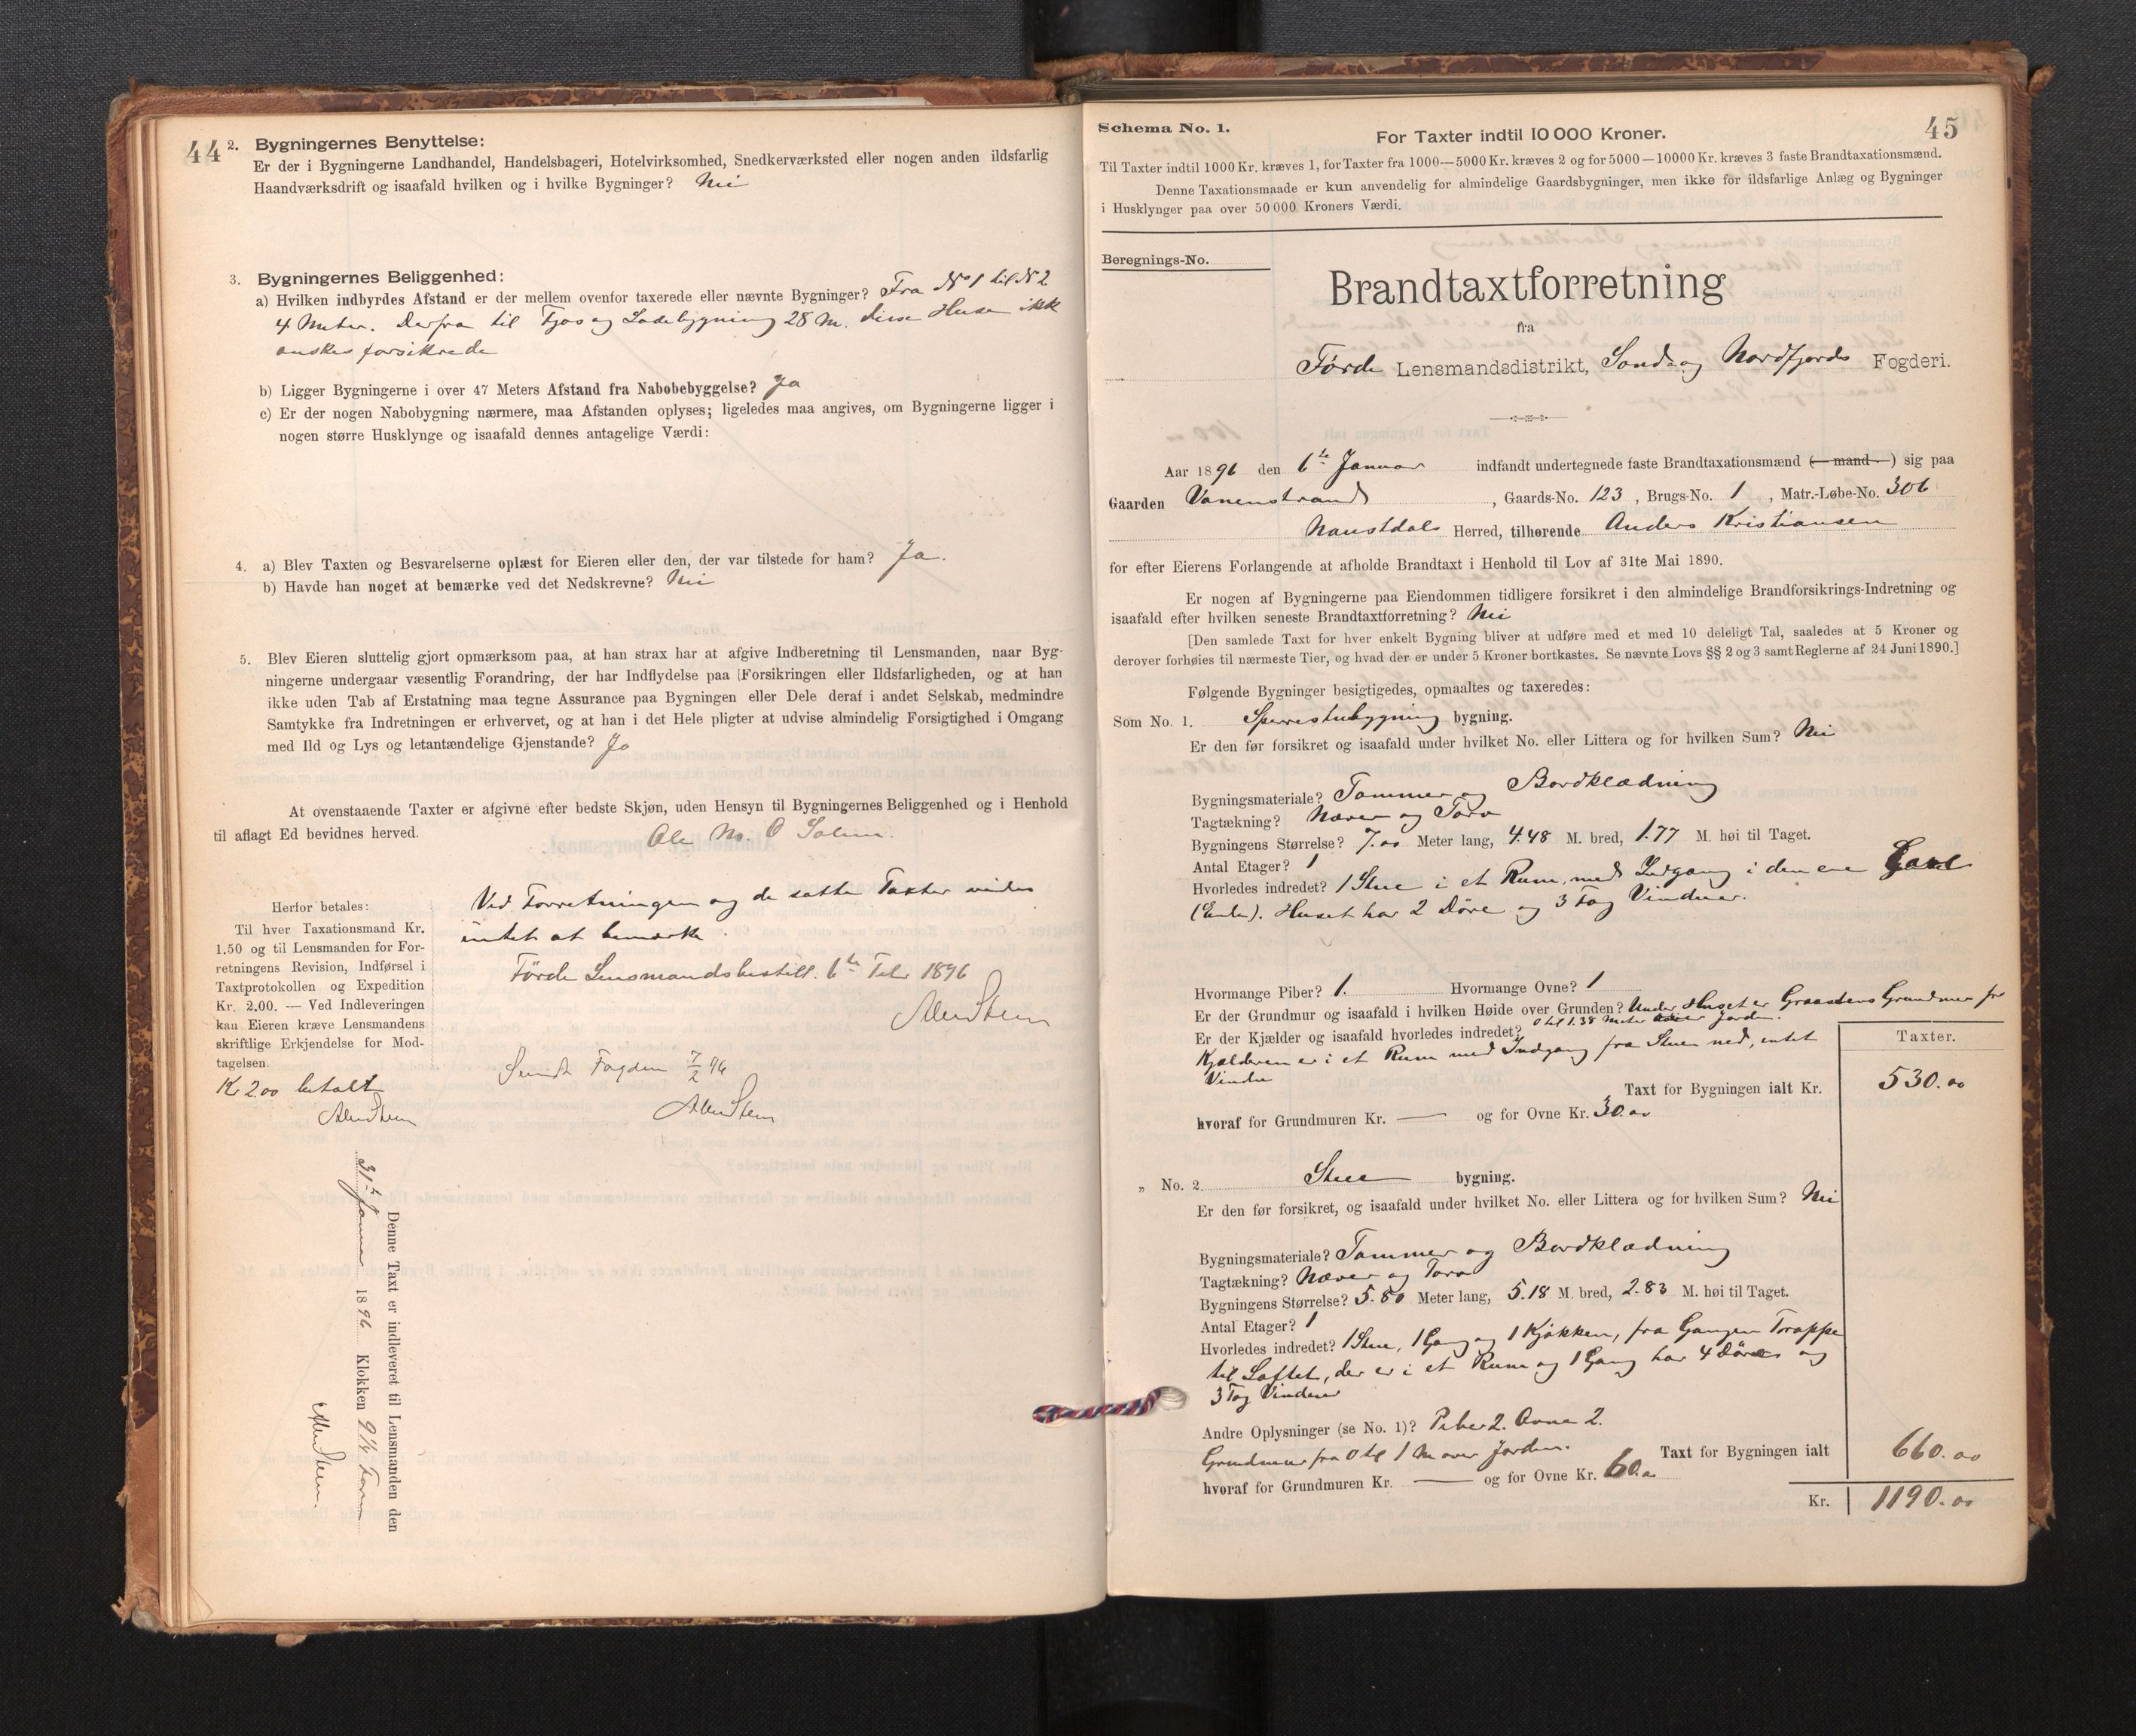 44
2. Bygningernes Benyttelse:
Er der i Bygningerne Landhandel, Handelsbageri, Hotelvirksomhed, Snedkerværksted eller nogen anden ildsfarlig
Haandværksdrift og isaafald hvilken og i hvilke Bygninger? Nei
3. Bygningernes Beliggenhed:
a) Hvilken indbyrdes Afstand er der mellem ovenfor taxerede eller nævnte Bygninger? Fra No 1 til N 2
4 Meter. Derfra til Fjøs og Ladebygning 28 M. disse Huse ikke
ønskes forsikrede
b) Ligger Bygningerne i over 47 Meters Afstand fra Nabobebyggelse? Ja
c) Er der nogen Nabobygning nærmere, maa Afstanden oplyses; ligeledes maa angives, om Bygningerne ligger i
nogen større Husklynge og isaafald dennes antagelige Værdi:
4. a) Blev Taxten og Besvarelserne oplæst for Eieren eller den, der var tilstede for ham? Ja.
b) Havde han noget at bemærke ved det Nedskrevne? Nei
5. Blev Eieren sluttelig gjort opmærksom paa, at han strax har at afgive Indberetning til Lensmanden, naar Byg-
ningerne undergaar væsentlig Forandring, der har Indflydelse paa Forsikringen eller Ildsfarligheden, og at han
ikke uden Tab af Erstatning maa tegne Assurance paa Bygningen eller Dele deraf i andet Selskab, medmindre
Samtykke fra Indretningen er erhvervet, og at han i det Hele pligter at udvise almindelig Forsigtighed i Omgang
med Ild og Lys og letantændelige Gjenstande? Ja
At ovenstaaende Taxter er afgivne efter bedste Skjøn, uden Hensyn til Bygningernes Beliggenhed og i Henhold
til aflagt Ed bevidnes herved.
Ole M. O Solem.
Ved Forretningen og de satte Taxter vides
intet at bemærke.
Förde Lensmandsbestill. 6te Febr 1896
Herfor betales:
Til hver Taxationsmand Kr.
1.50 og til Lensmanden for For-
retningens Revision, Indførsel i
Taxtprotokollen og Expedition
Kr. 2.00. — Ved Indleveringen
kan Eieren kræve Lensmandens
skriftlige Erkjendelse for Mod-
tagelsen.
Kr 2.00 betalt
Sendt Fogden 7/2 96
Denne Taxt er indleveret til Lensmanden den
31te Januar 1896 Klokken 9½ Form
45
Schema No. 1.
For Taxter indtil 10 000 Kroner.
Til Taxter indtil 1000 Kr. kræves 1, for Taxter fra 1000—5000 Kr. kræves 2 og for 5000—10000 Kr. kræves 3 faste Brandtaxationsmænd.
Denne Taxationsmaade er kun anvendelig for almindelige Gaardsbygninger, men ikke for ildsfarlige Anlæg og Bygninger
i Husklynger paa over 50 000 Kroners Værdi.
Beregnings-No.
Brandtaxtforretning
fra
Førde Lensmandsdistrikt, Sønd- og Nordfjords Fogderi.
Aar 1896 den 6te Januar indfandt undertegnede faste Brandtaxationsmænd (— mand —) sig paa
Gaarden Vonenstrand, Gaards-No. 123, Brugs-No. 1, Matr.-Løbe-No. 306
Naustdals Herred, tilhørende Anders Kristiansen
for efter Eierens Forlangende at afholde Brandtaxt i Henhold til Lov af 31te Mai 1890.
Er nogen af Bygningerne paa Eiendommen tidligere forsikret i den almindelige Brandforsikrings-Indretning og
isaafald efter hvilken seneste Brandtaxtforretning? Nei
[Den samlede Taxt for hver enkelt Bygning bliver at udføre med et med 10 deleligt Tal, saaledes at 5 Kroner og
derover forhøies til nærmeste Tier, og hvad der er under 5 Kroner bortkastes. Se nævnte Lovs §§ 2 og 3 samt Reglerne af 24 Juni 1890.]
Følgende Bygninger besigtigedes, opmaaltes og taxeredes:
Som No. 1. Sperrestubygning bygning.
Er den før forsikret og isaafald under hvilket No. eller Littera og for hvilken Sum? Nei
Bygningsmateriale? Tømmer og Bordklædning
Tagtækning? Næver og Torv
Bygningens Størrelse? 7.00 Meter lang, 4.48 M. bred, 1.77 M. høi til Taget.
Antal Etager? 1
Hvorledes indredet? 1 Stue i et Rum, med Indgang i den ene Gavl
(Ende). Huset har 2 Döre og 3 Fag Vinduer.
Hvormange Piber? 1. Hvormange Ovne? 1
Er der Grundmur og isaafald i hvilken Høide over Grunden? Under Huset er Graastens Grundmur fra
0 til 1.38 Meter over Jorden.
Er der Kjælder og isaafald hvorledes indredet?
Kjælderen er i et Rum med Indgang fra Stuen ned, intet
Vindu
Taxter.
Taxt for Bygningen ialt Kr. 530.00
hvoraf for Grundmuren Kr. — og for Ovne Kr. 30.00
„ No. 2. Stue bygning.
Er den før forsikret, og isaafald under hvilket No. eller Littera og for hvilken Sum? Nei
Bygningsmateriale? Tømmer og Bordklædning
Tagtækning? Næver og Torv
Bygningens Størrelse? 5.80 Meter lang, 5.18 M. bred, 2.83 M. høi til Taget.
Antal Etager? 1
Hvorledes indredet? 1 Stue, 1 Gang og 1 Kjøkken, fra Gangen Trappe
til Loftet, der er i et Rum og 1 Gang har 4 Döre og
3 Fag Vinduer
Andre Oplysninger (se No. 1)? Piber 2. Ovne 2.
Grundmur fra 0 til 1 M over Jorden. Taxt for Bygningen ialt 660.00
hvoraf for Grundmuren Kr. — og for Ovne Kr. 60.00
Kr. 1190.00